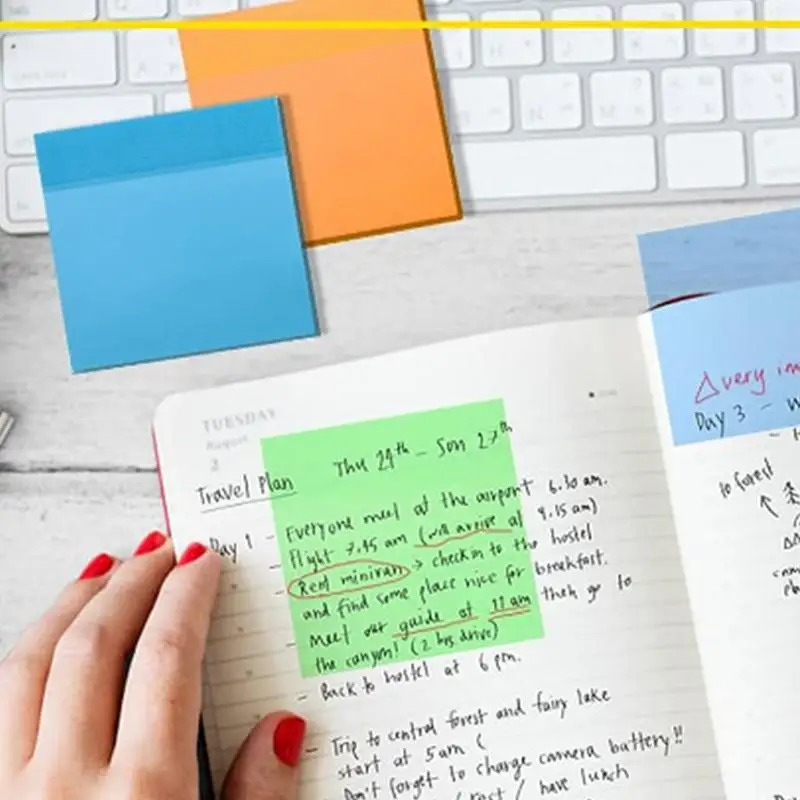 TUESDAY
August
2
Travel Plan
Thu 24th - Sun 27th
Day 1 - Everyone meet at the airport 6.30 am.
- Flight 7.45 am (will arrive at 9.15 am)
- Rent minivan → check in to the hostel
and find some place nice for breakfast.
- Meet our guide at 11 am then go to
the canyon! (2 hrs drive)
- Back to hostel at 6 pm.
- Trip to central forest and fairy lake
start at 5 am (
Don't forget to charge camera battery!!
/ have lunch
very im
Day 3 -
to forest